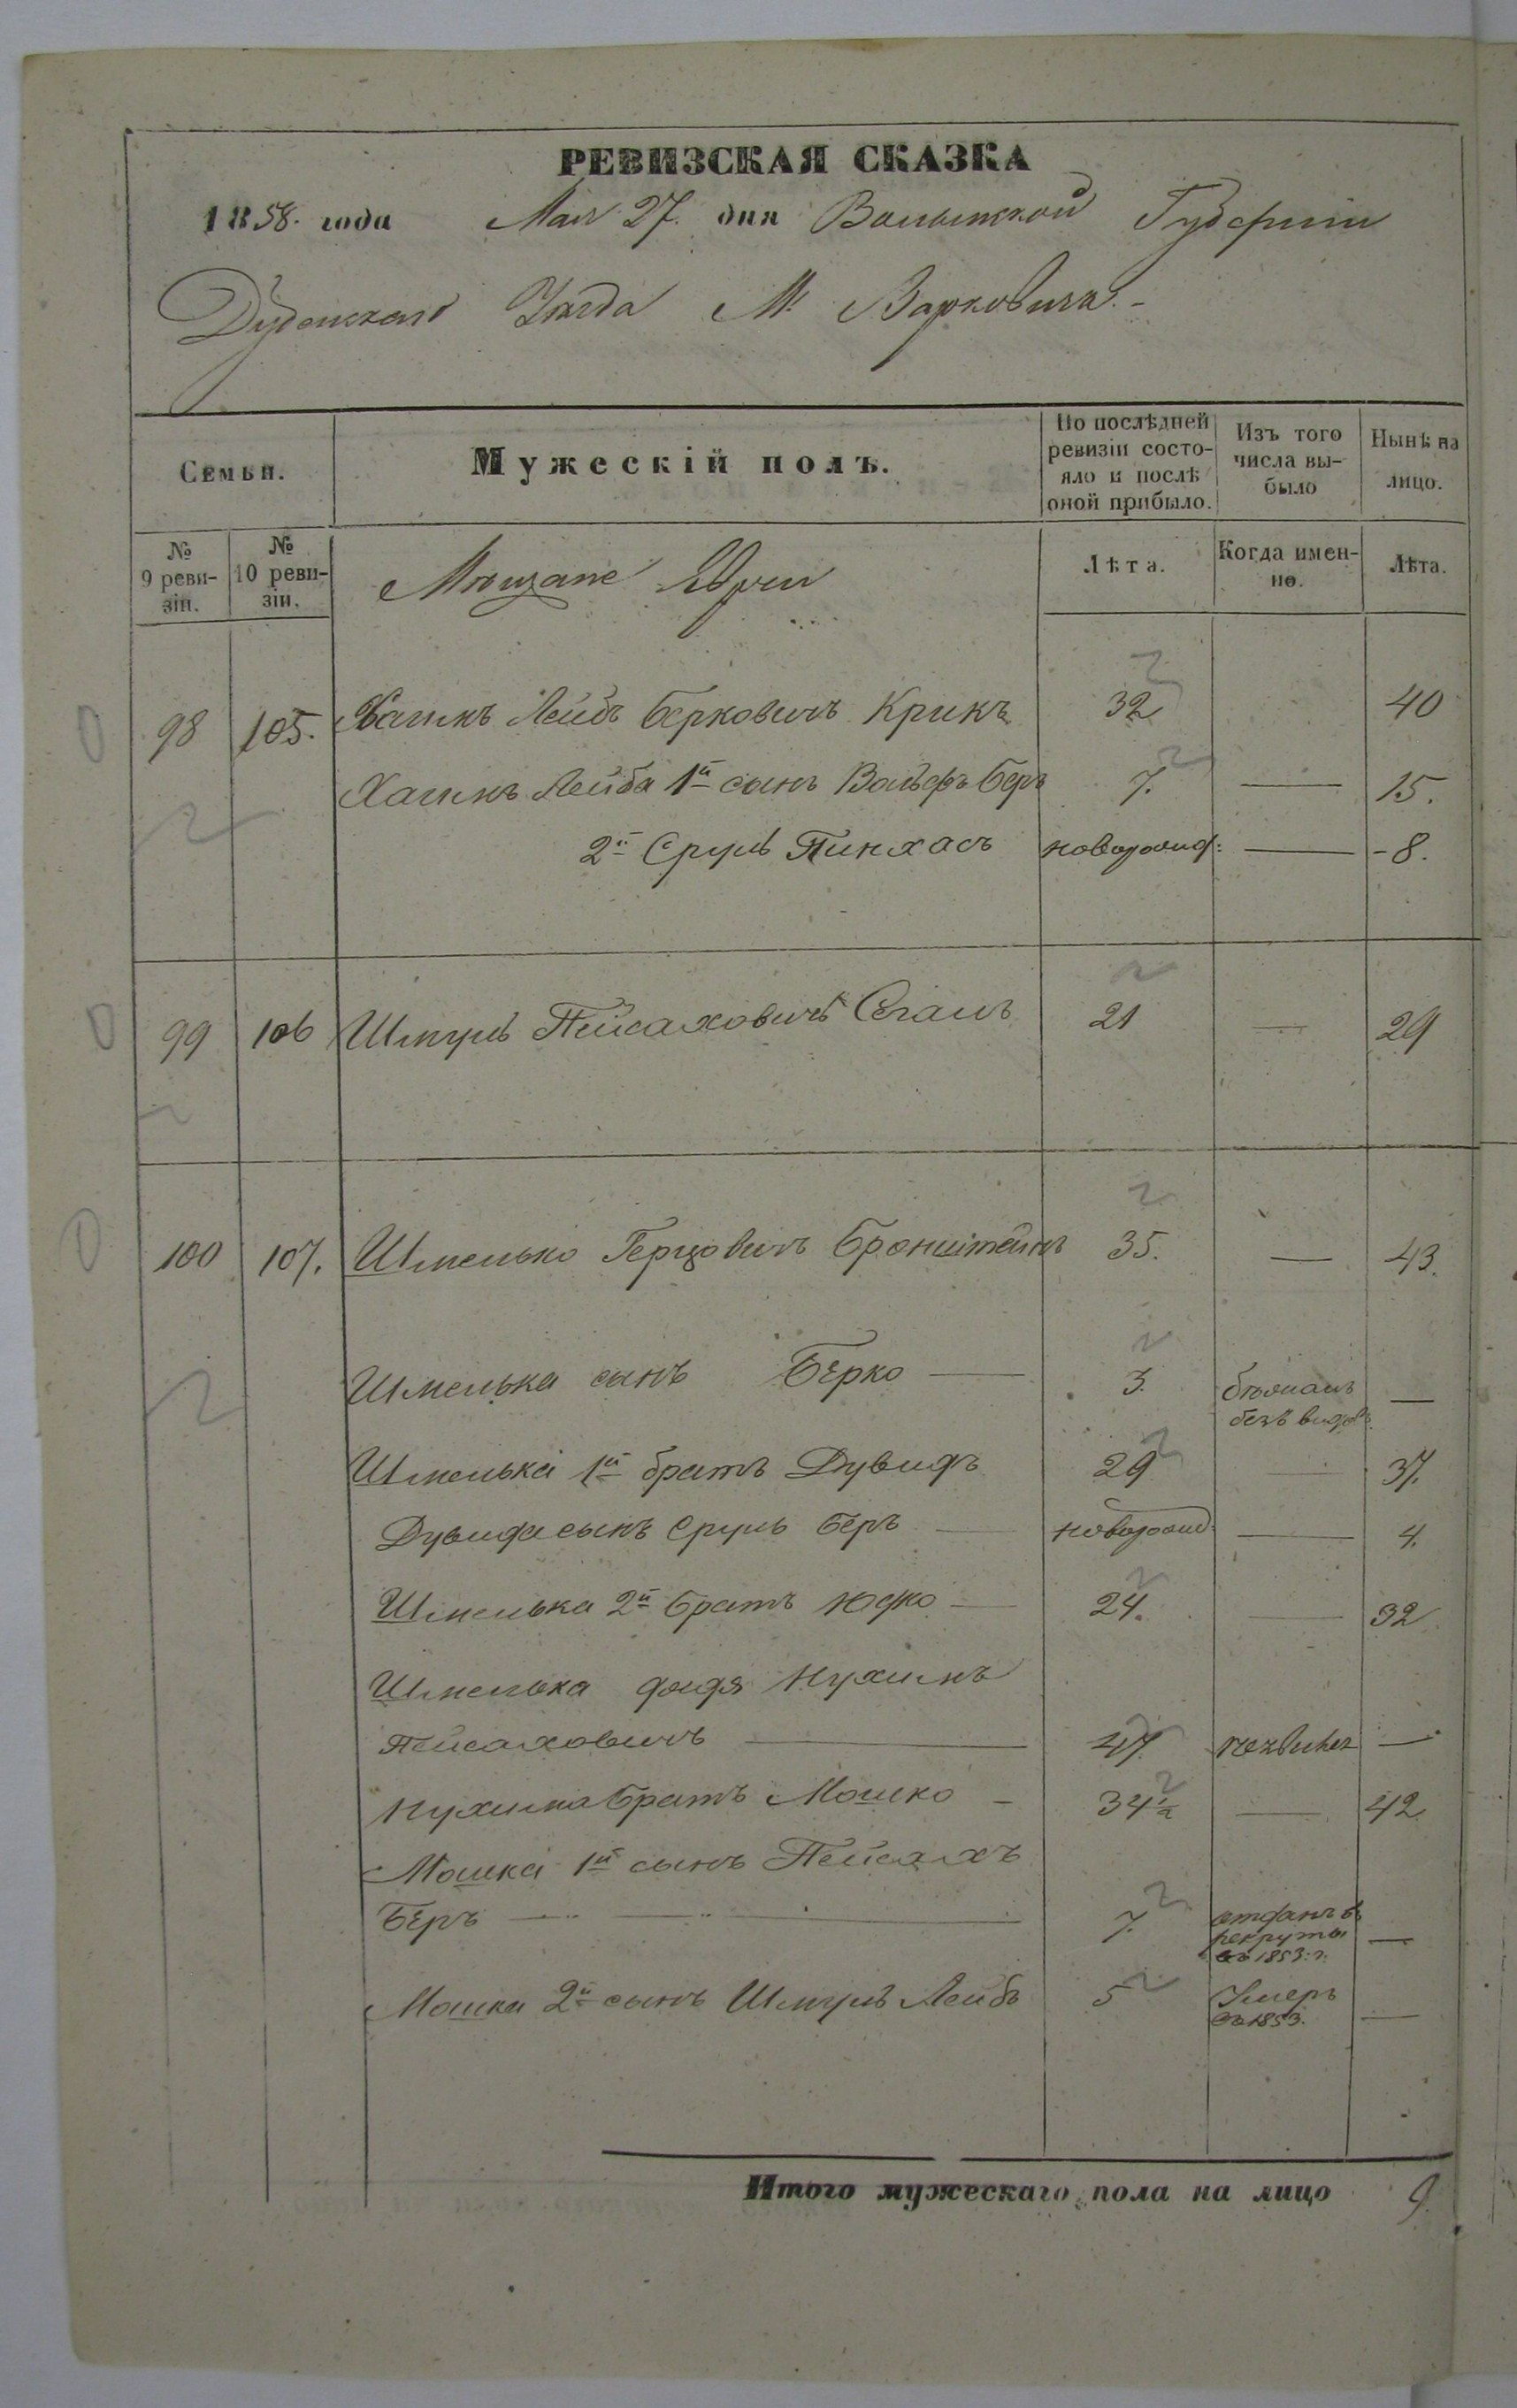 РЕВИЗСКАЯ СКАЗКА
1858. года Мая 27. дня Волынской Губерніи
Дубенскаго Уѣзда М. Варковичи.
Семьи.
Мужескій полъ.
По послѣдней ревизіи состо-
яло и послѣ
оной прибыло.
Изъ того
числа вы-
было
Нынѣ на
лицо.
№
9 реви-
зіи.
№
10 реви-
зіи.
Мѣщане Евреи
Лѣта.
Когда имен-
но.
Лѣта.
98 105. Хаимъ Лейбъ Берковичъ Крикъ 32 40
Хаимъ Лейба 1й сынъ Вольфъ Беръ 7. — 15.
2й Сруль Пинхасъ новорожд: — 8.
99 106 Шмуль Пейсаховичъ Сегалъ 21 — 29
100 107. Шмелько Герцовичъ Бронштейнъ 35. — 43.
Шмелька сынъ Берко — 3. —
безъ
Шмелька 1й братъ Дувидъ 29 — 37.
Дувида сынъ Сруль Беръ — новорожд: — 4.
Шмелька 2й братъ Юфко — 24. — 32
Шмелька дядя Нухимъ
Пейсаховичъ — 47. —
Нухима братъ Мошко — 34½ — 42
Мошка 1й сынъ Пейсахъ
Беръ — 7. отданъ въ
рекруты —
въ 1853: г.
Мошка 2й сынъ Шмуль Лейбъ 5 Умеръ
въ 1853. —
Итого мужескаго пола на лицо 9.